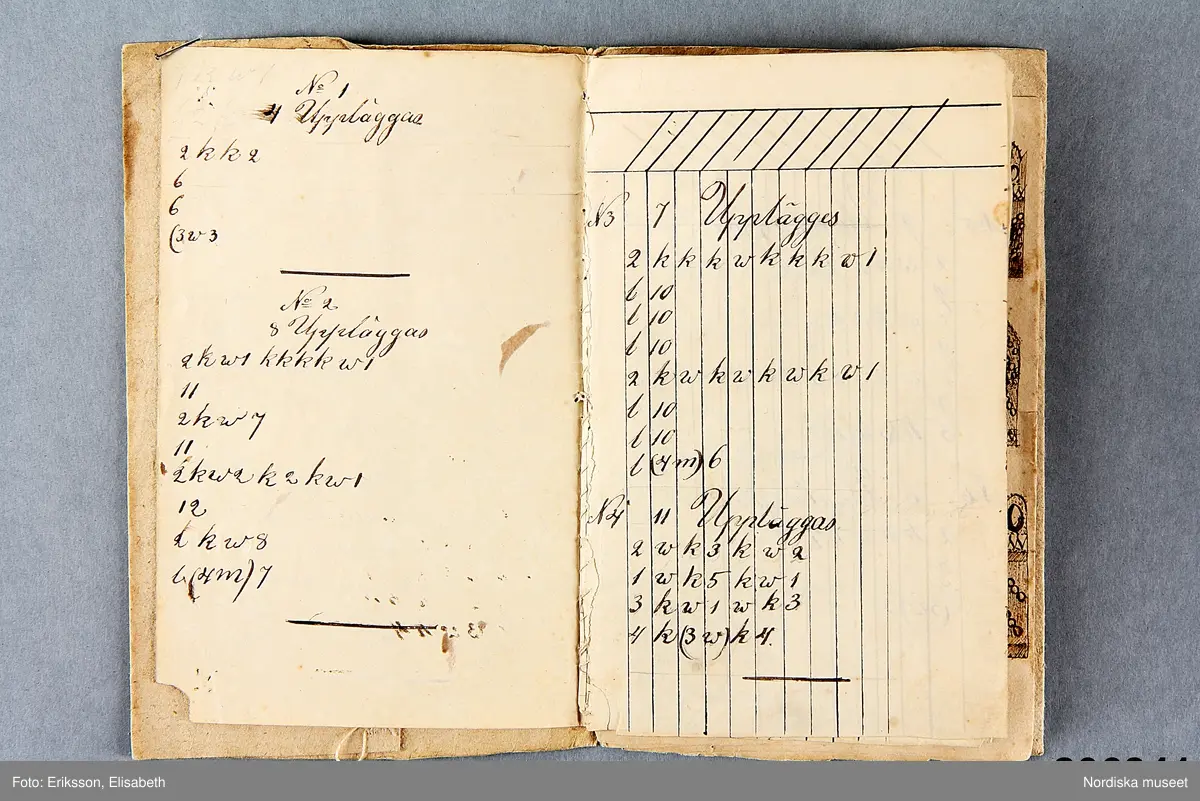 No 1
4 Uppläggas
2 k k 2
6
6
(3 w 3
No 2
8 Uppläggas
2 k w 1 k k k k w 1
11
2 k w 7
11
2 k w 2 k 2 k w 1
12
2 k w 8
b (4 m) 7
N3 7 Upplägges
2 k k k w k k k w 1
b 10
b 10
b 10
2 k w k w k w k w 1
b 10
b 10
b (4 m) 6
N4 11 Uppläggas
2 w k 3 k w 2
1 w k 5 k w 1
3 k w 1 w k 3
4 k (3 w) k 4.
Foto: Eriksson, Elisabeth
Nordiska museet